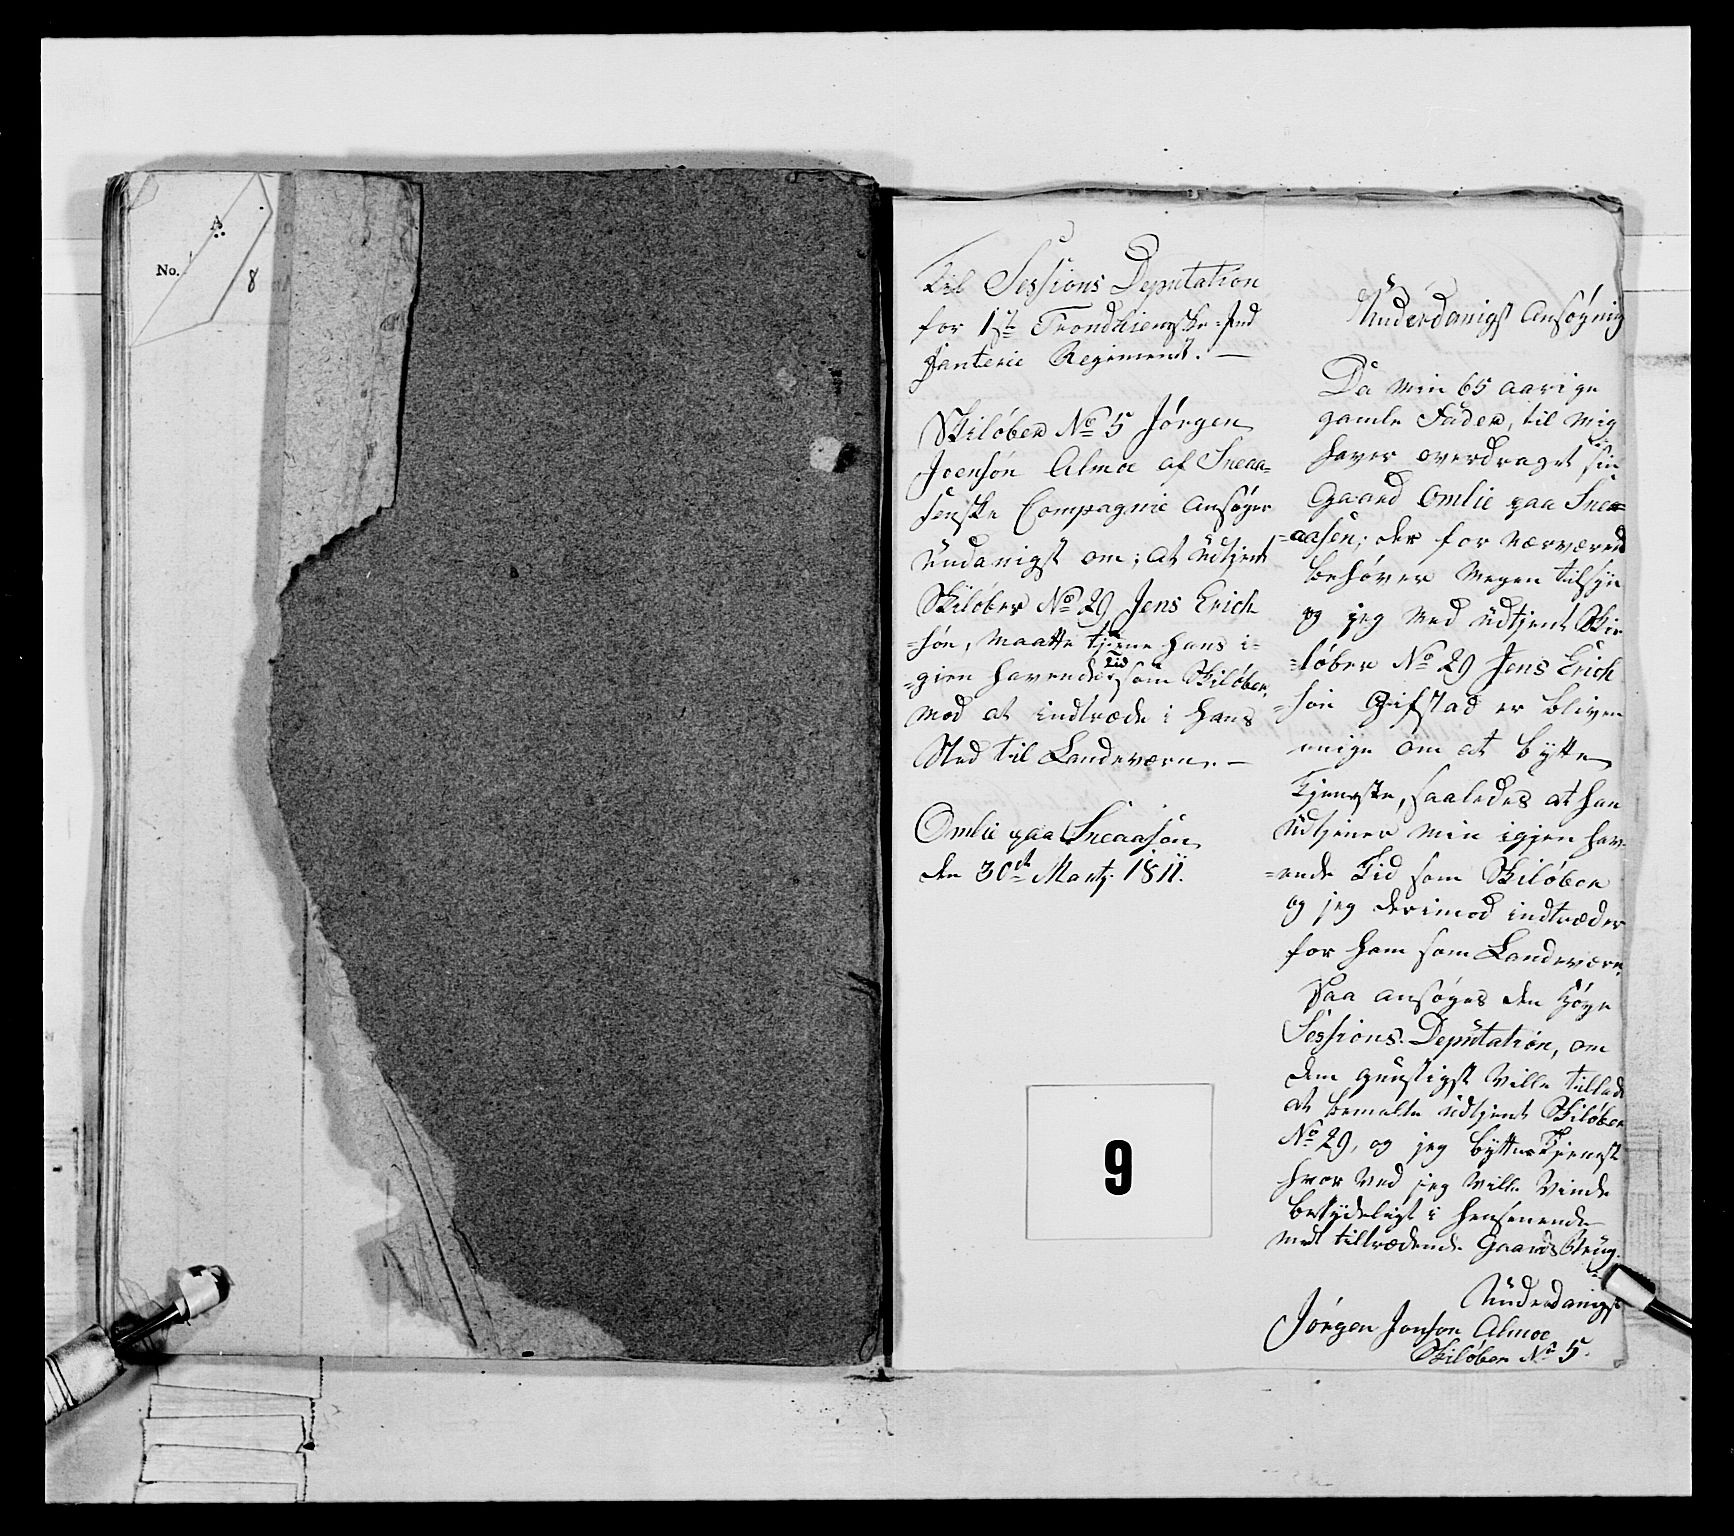 A
No.
8
Til Sessions Deputation
for 1ste Trondhiemske Inf
fanterie Regiment. —
Skiløber No 5 Jørgen
Joensøn Almoe af Sneaa-
senske Compagnie Ansøger
Undanigst om; at Udtjent
Skiløber No 29 Jens Erich
=søn, maatte tjene hans i-
=gien havende Tid som Skiløber,
mod at indtræde i hans
Sted til Landeværn. —
Omlie paa Sneaasen
den 30te Martj 1811.
9
Underdanigst Ansøgnig
Da min 65 aarige
gamle Fader, til mig
haver overdraget sin
Gaard Omlie paa Snea=
=aasen; der for nærværend
behøver megen tilsyn
og jeg med udtjent Ski
=løber No 29 Jens Erich
=søn Gifstad er bliven
enige om at bytte
Tjeneste, saaledes at han
Udtjener min igjen hav-
=ende Tid som Skiløber
og jeg derimod indtræder
for ham som Landeværn,
Saa ansøges den Høye
Sessions Deputation, om
dem gunstigst ville tillade
at bemelte udtjent Skiløber
No 29, og jeg bytter Tjenest
hvor ved jeg ville vinde
betydeligt i henseende
med tiltrædende Gaards Brug.
Underdanigst
Jørgen Jonsøn Almoe
Skiløber No 5.